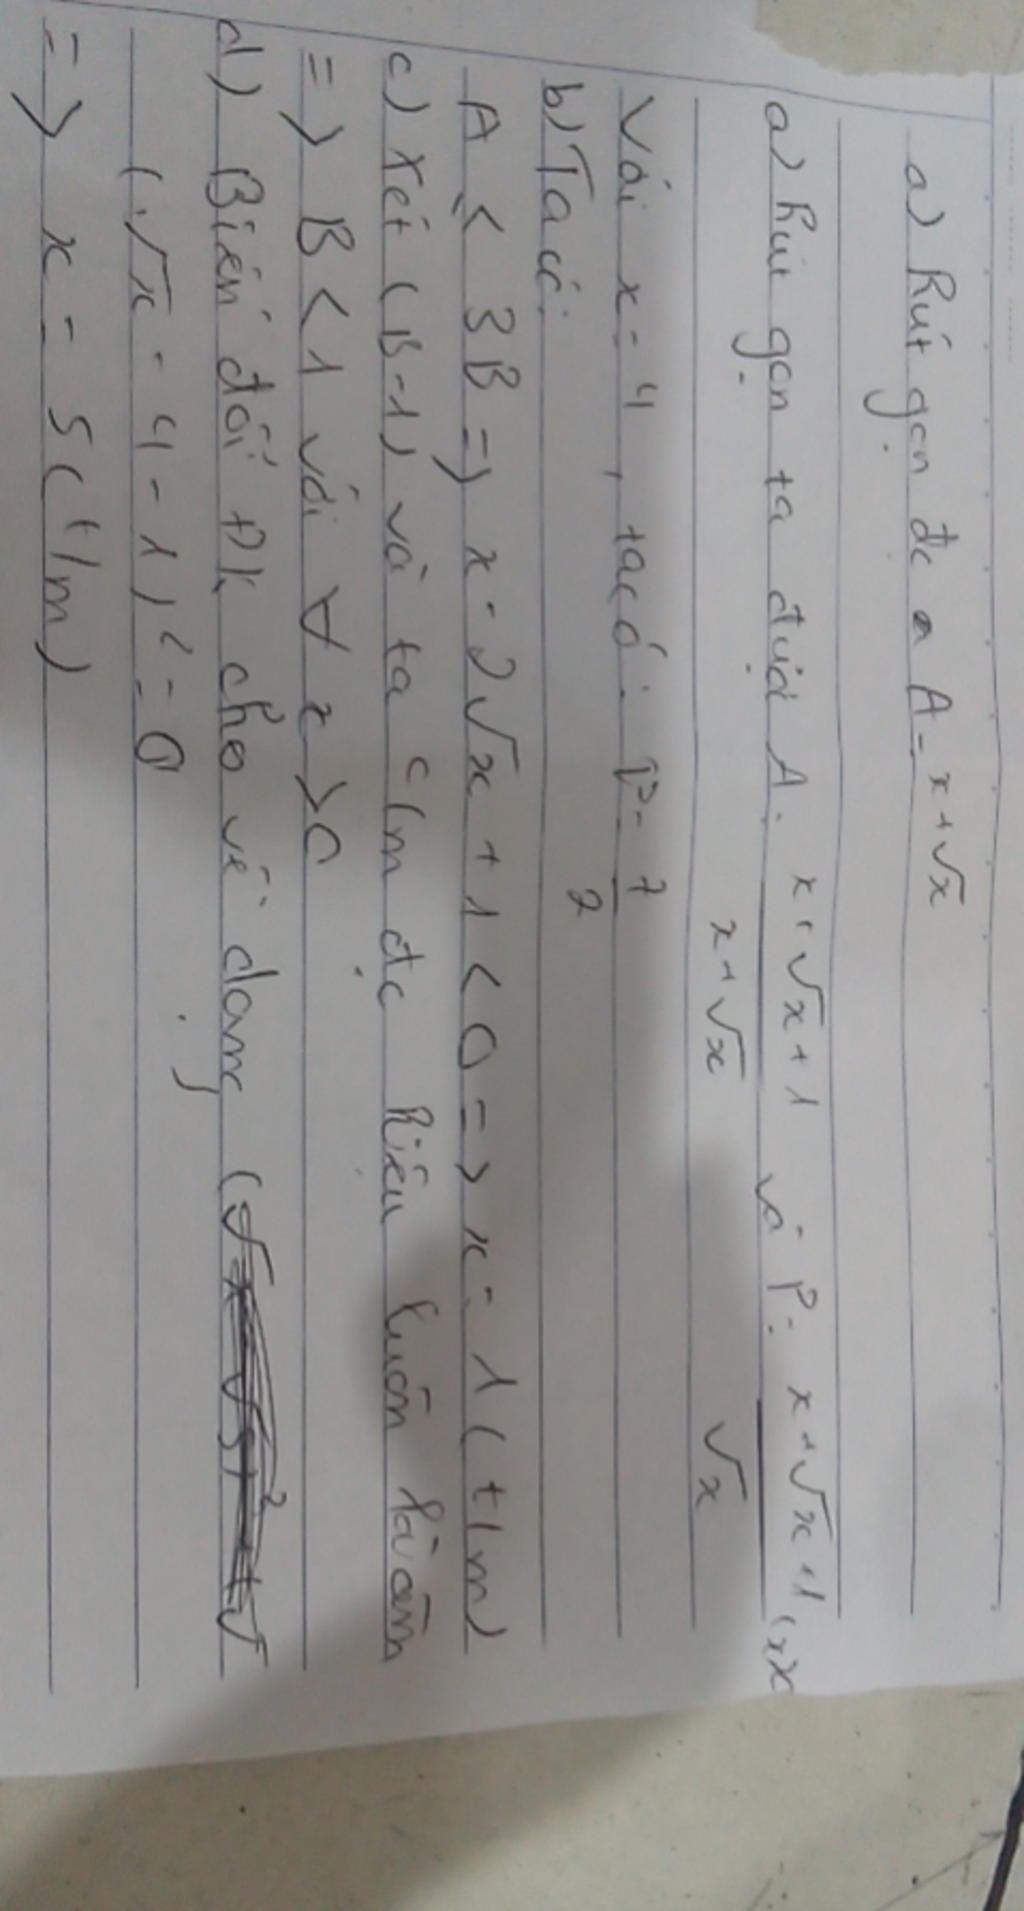 a) Rút gọn đc A = x + √x
a) Rút gọn ta được A = x + √x + 1 / x + √x và P = x + √x + 1 / √x
Với x = 4, ta có: P = 7/2
b) Ta có:
A ≤ 3B => x - 2√x + 1 < 0 => x = 1 (t/m)
c) Xét (B-1) và ta c/m đc hiệu luôn là âm
=> B < 1 với ∀ x > 0
d) Biến đổi ĐK cho về dạng (
(√x - 4 - 1)² = 0
=> x = 5 (t/m)